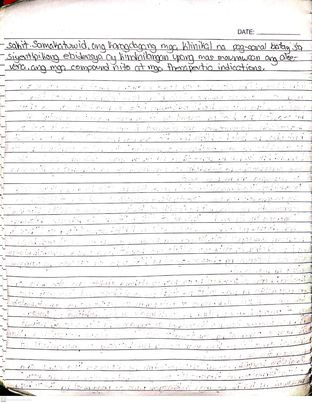 DATE:
sakit. Samakatuwid, ang karagdagang mga klinikal na pag-aaral batay sa
siyentipikong ebidensya ay kinakailangan upang mas maunawaan ang
ang mga compound nito at mga therapeutic indications.